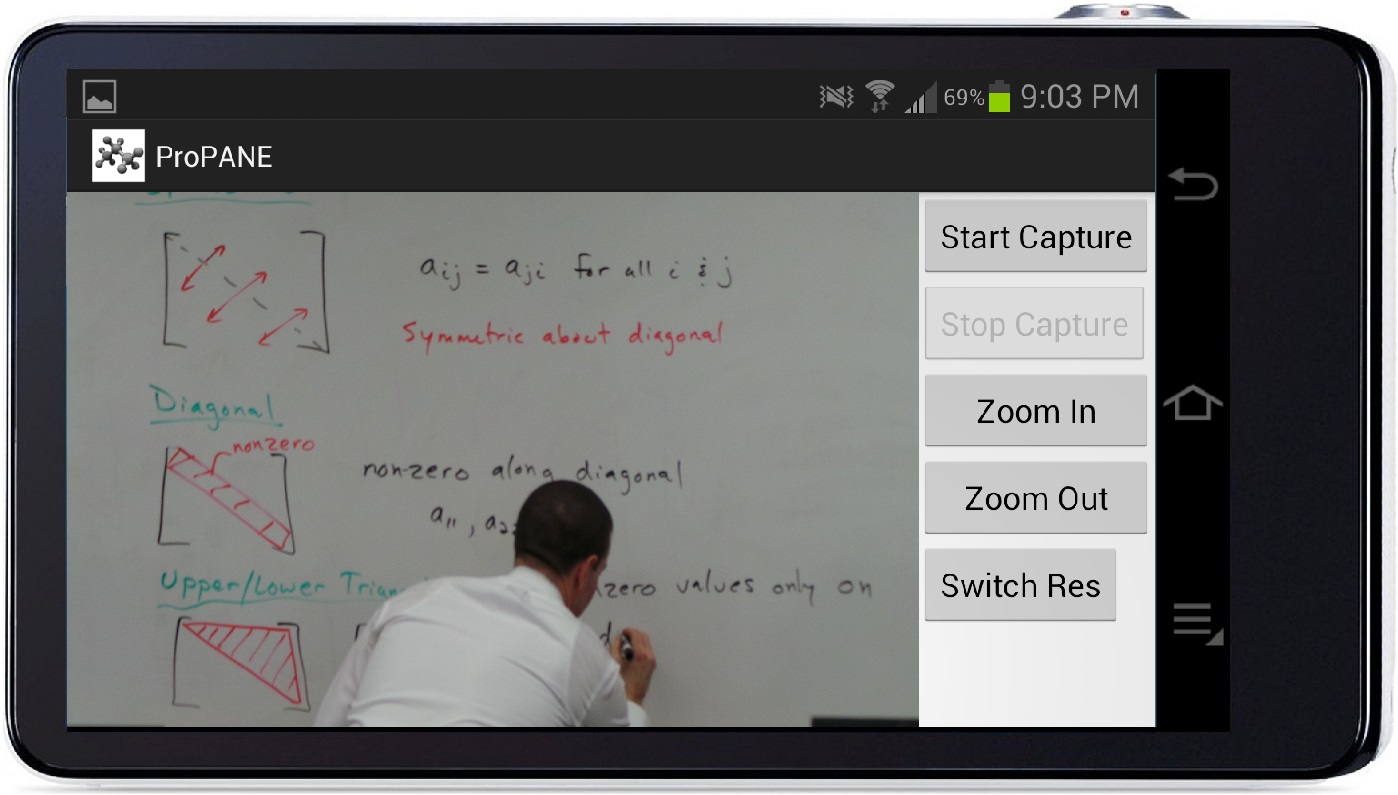 69% 9:03 PM
ProPANE
aij = aji for all i & j
Symmetric about diagonal
Diagonal
nonzero
non-zero along diagonal
a11, a2
Upper/Lower Trian
zero values only on
d
Start Capture
Stop Capture
Zoom In
Zoom Out
Switch Res